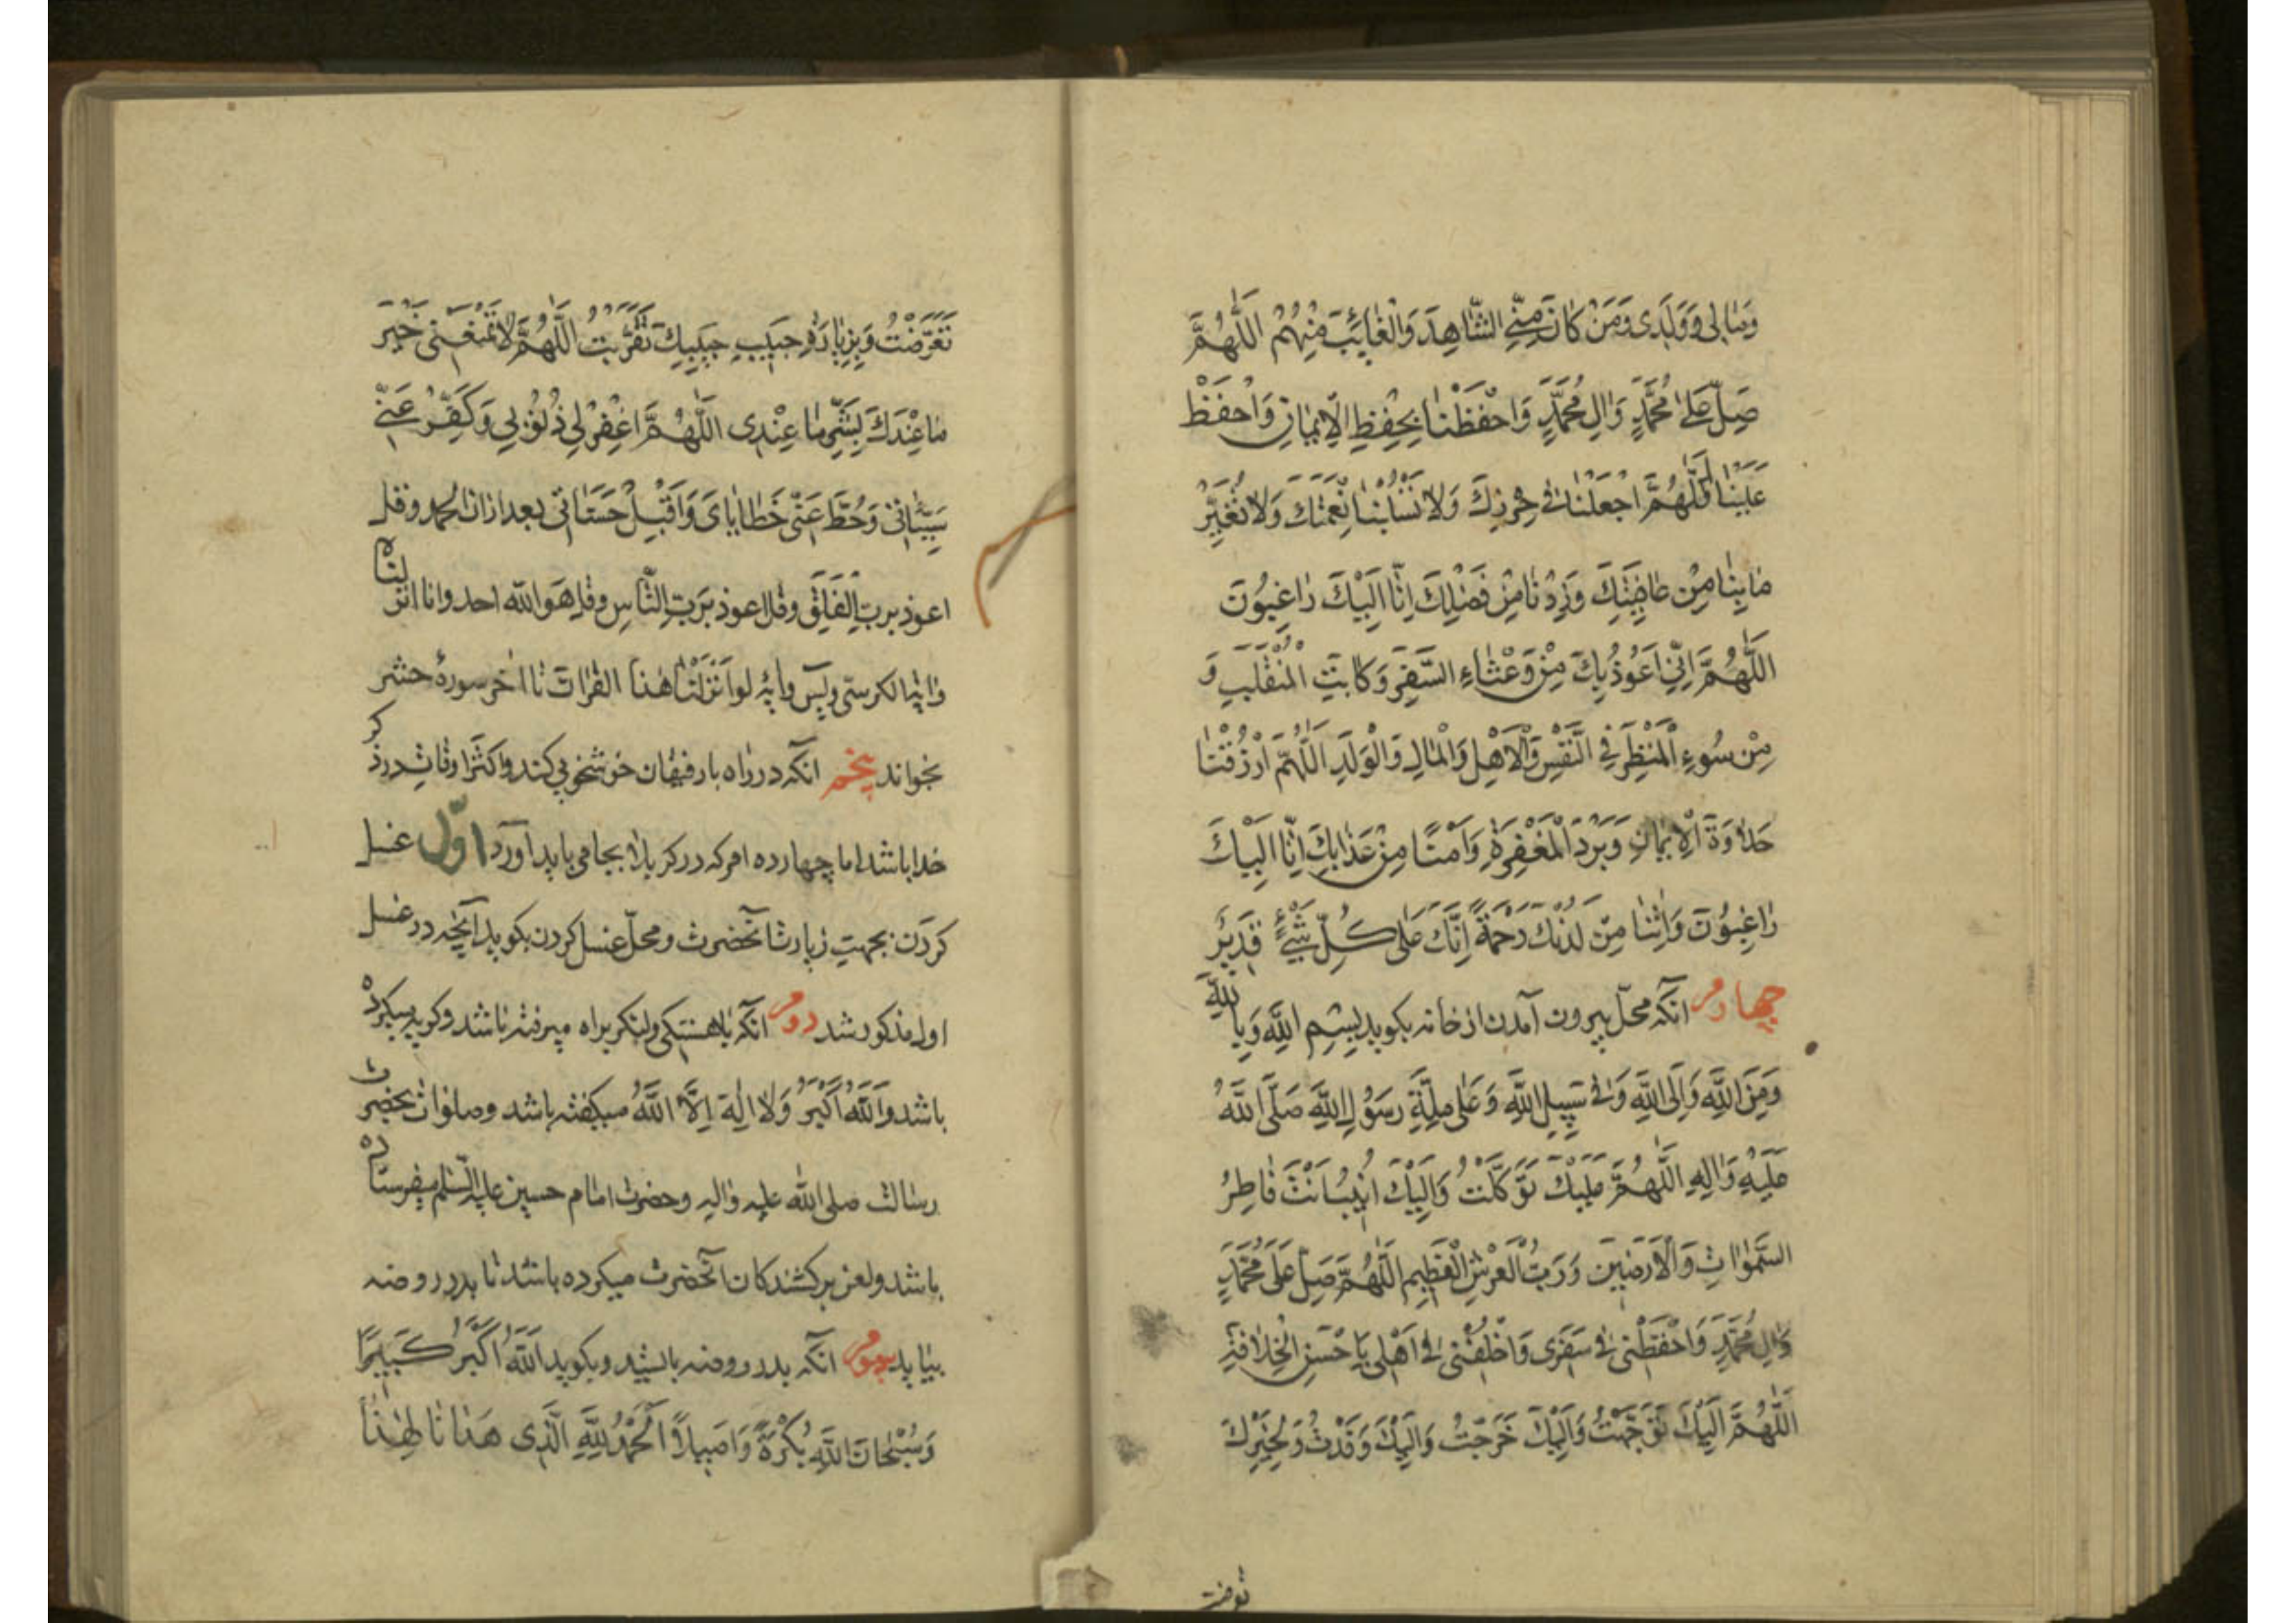 وَمٰالی وَوَلَدی وَمَنْ كٰانَ مِنّی الشّٰاهِدَ وَالْغٰائِبَ مِنْهُمْ اَللّٰهُمَّ
صَلِّ عَلیٰ مُحَمَّدٍ وَاٰلِ مُحَمَّدٍ وَاحْفَظْنٰا بِحِفْظِ الْاِیمٰانِ وَاحْفَظْ
عَلَیْنٰا اَللّٰهُمَّ اجْعَلْنٰا فی حِرْزِكَ وَلٰا تَسْلُبْنٰا نِعْمَتَكَ وَلٰا تُغَیِّرْ
مٰا بِنٰا مِنْ عٰافِیَتِكَ وَزِدْنٰا مِنْ فَضْلِكَ اِنّٰا اِلَیْكَ رٰاغِبُونَ
اَللّٰهُمَّ اِنّی اَعُوذُ بِكَ مِنْ وَعْثٰاءِ السَّفَرِ وَكٰابَةِ الْمُنْقَلَبِ وَ
مِنْ سُوءِ الْمَنْظَرِ فِی النَّفْسِ وَالْاَهْلِ وَالْمٰالِ وَالْوَلَدِ اَللّٰهُمَّ ارْزُقْنٰا
حَلٰاوَةَ الْاِیمٰانِ وَبَرْدَ الْمَغْفِرَةِ وَاَمْنًا مِنْ عَذٰابِكَ اِنّٰا اِلَیْكَ
رٰاغِبُونَ وَاٰتِنٰا مِنْ لَدُنْكَ رَحْمَةً اِنَّكَ عَلٰی كُلِّ شَیْءٍ قَدیرٌ
چهارم آنكه محلّ بیرون آمدن از خانه بكوید بِسْمِ اللّٰهِ وَبِاللّٰهِ
وَمِنَ اللّٰهِ وَاِلَی اللّٰهِ وَفی سَبیلِ اللّٰهِ وَعَلٰی مِلَّةِ رَسُولِ اللّٰهِ صَلَّی اللّٰهُ
عَلَیْهِ وَاٰلِهِ اَللّٰهُمَّ عَلَیْكَ تَوَكَّلْتُ وَاِلَیْكَ اَنَبْتُ اَنْتَ فٰاطِرُ
السَّمٰوٰاتِ وَالْاَرَضینَ وَرَبُّ الْعَرْشِ الْعَظیمِ اَللّٰهُمَّ صَلِّ عَلٰی مُحَمَّدٍ
وَاٰلِ مُحَمَّدٍ وَاحْفَظْنی فی سَفَری وَاخْلُفْنی فی اَهْلی بِاَحْسَنِ الْخِلٰافَةِ
اَللّٰهُمَّ اِلَیْكَ تَوَجَّهْتُ وَاِلَیْكَ خَرَجْتُ وَاِلَیْكَ وَفَدْتُ وَلِخَیْرِكَ
تَعَرَّضْتُ وَبِزِیٰارَةِ حَبیبِ حَبیبِكَ تَقَرَّبْتُ اَللّٰهُمَّ لٰا تَمْنَعْنی خَیْرَ
مٰا عِنْدَكَ بِشَرِّ مٰا عِنْدی اَللّٰهُمَّ اغْفِرْ لی ذُنُوبی وَكَفِّرْ عَنّی
سَیِّئٰاتی وَحُطَّ عَنّی خَطٰایٰایَ وَاقْبَلْ حَسَنٰاتی بعد ازان الحمد وقل
اعوذ بربّ الفلق وقل اعوذ بربّ النّاس وقل هو الله احد وانا انزلناه
وایة الكرسی ویس وایۀ لو انزلنا هذا القران تا اخر سورۀ حشر
بخواند پنجم آنكه در راه با رفیقان خوشخویی كند واكثر اوقات در ذكر
خدا باشد اما چهارده امر كه در كربلا بجا می باید آورد اوّل غسل
كردن بجهت زیارت آنحضرت ومحلّ غسل كردن بكوید آنچه در غسل
اول مذكور شد دوم آنكه باهستكی ولنكر براه میرفته باشد وكریه میكرده
باشد وَاللّٰهُ اَكْبَرُ وَلٰا اِلٰهَ اِلَّا اللّٰهُ میكفته باشد وصلوات بحضرت
رسالت صلی الله علیه واله وحضرت امام حسین علیه السّلم میفرستاده
باشد ولعن بر كشندكان آنحضرت میكرده باشد تا بدر روضه
بیاید سوم آنكه بدر روضه بایستد وبكوید اَللّٰهُ اَكْبَرُ كَبیرًا
وَسُبْحٰانَ اللّٰهِ بُكْرَةً وَاَصیلًا اَلْحَمْدُ لِلّٰهِ الَّذی هَدٰانٰا لِهٰذٰا